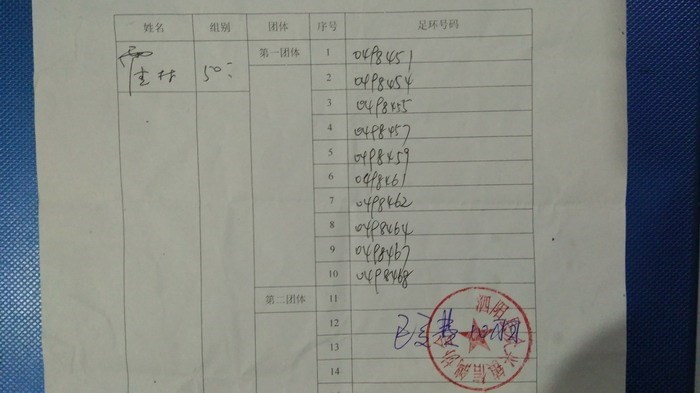 姓名 组别 团体 序号 足环号码
第一团体 1 0498451
2 0498454
3 0498455
4 0498457
5 0498459
6 0498461
7 0498462
8 0498464
9 0498467
10 0498468
第二团体 11
12
13
14